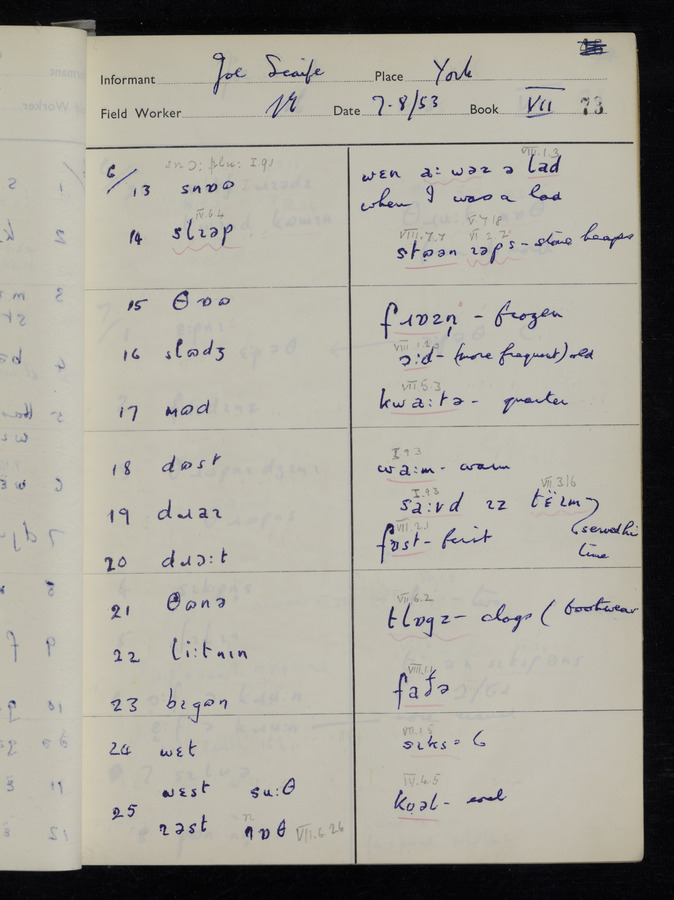 Informant Joe Scaife Place York
Field Worker Date 7-8/53 Book VII 73
6/
snɔ: I.91
13 snɒʊ
IV.6.4
14 slɪəp
15 θɒʊ
16 slʊdʒ
17 mʊd
18 dʊst
19 dɹaɪ
20 dɹɔ:t
21 θʊnə
22 li:tnɪn
23 bɪgən
24 wɛt
25 wɛst su:θ
ɪəst nɒθ VII.6.26
VIII.1.3
wɛn a: wəz ə lad
when I was a lad
VIII.7.7 V.7.18 VI.2.2
stʊən ɪəps - stone heaps
fɹɒzn̩ - frozen
VIII.1.20
ɔ:d - (more frequent) old
VII.5.3
kwa:tə - quarter
I.9.3
wa:m - warm
I.9.3 VII.3.16
sa:vd ɪz tɛ̈ɪm
VII.2.1
(served his
fɒst - first
time
VII.6.2
tlɒgz - clogs ( footwear
VIII.1.1
faðə
VII.1.5
sɪks = 6
IV.4.5
kʊəl - coal